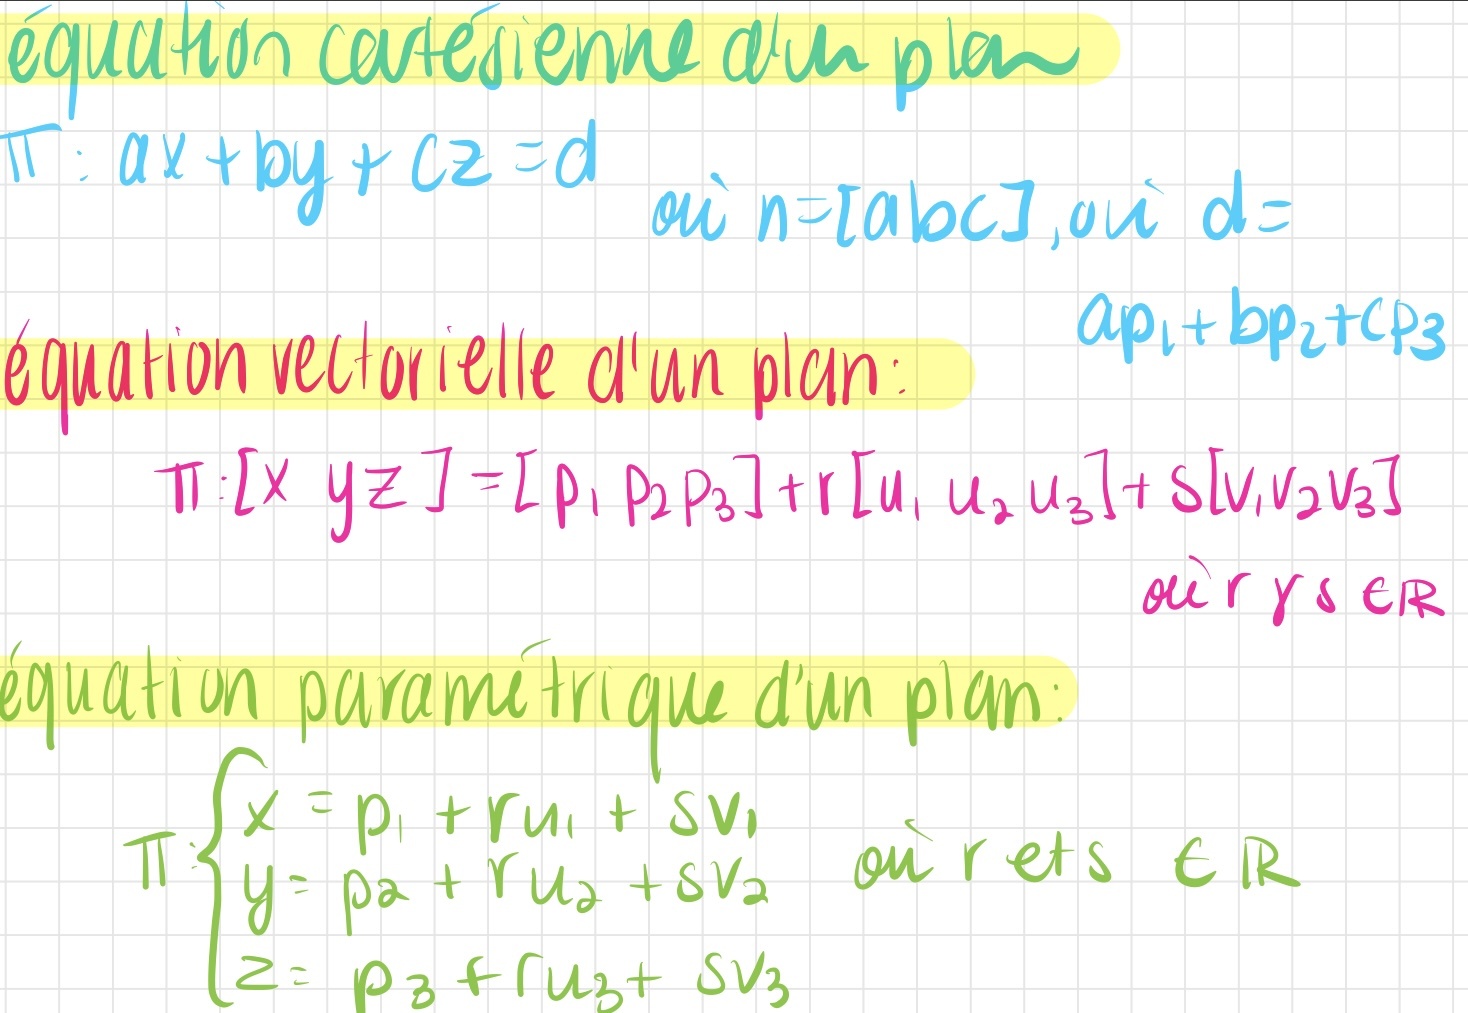 équation cartésienne d'un plan
π: ax + by + cz = d
où n=[abc], où d=
ap₁ + bp₂ + cp₃
équation vectorielle d'un plan:
π:[x y z] = [p₁ p₂ p₃] + r[u₁ u₂ u₃] + s[v₁ v₂ v₃]
où r y s ∈ ℝ
équation paramétrique d'un plan:
π: { x = p₁ + ru₁ + sv₁
y = p₂ + ru₂ + sv₂ où r et s ∈ ℝ
z = p₃ + ru₃ + sv₃